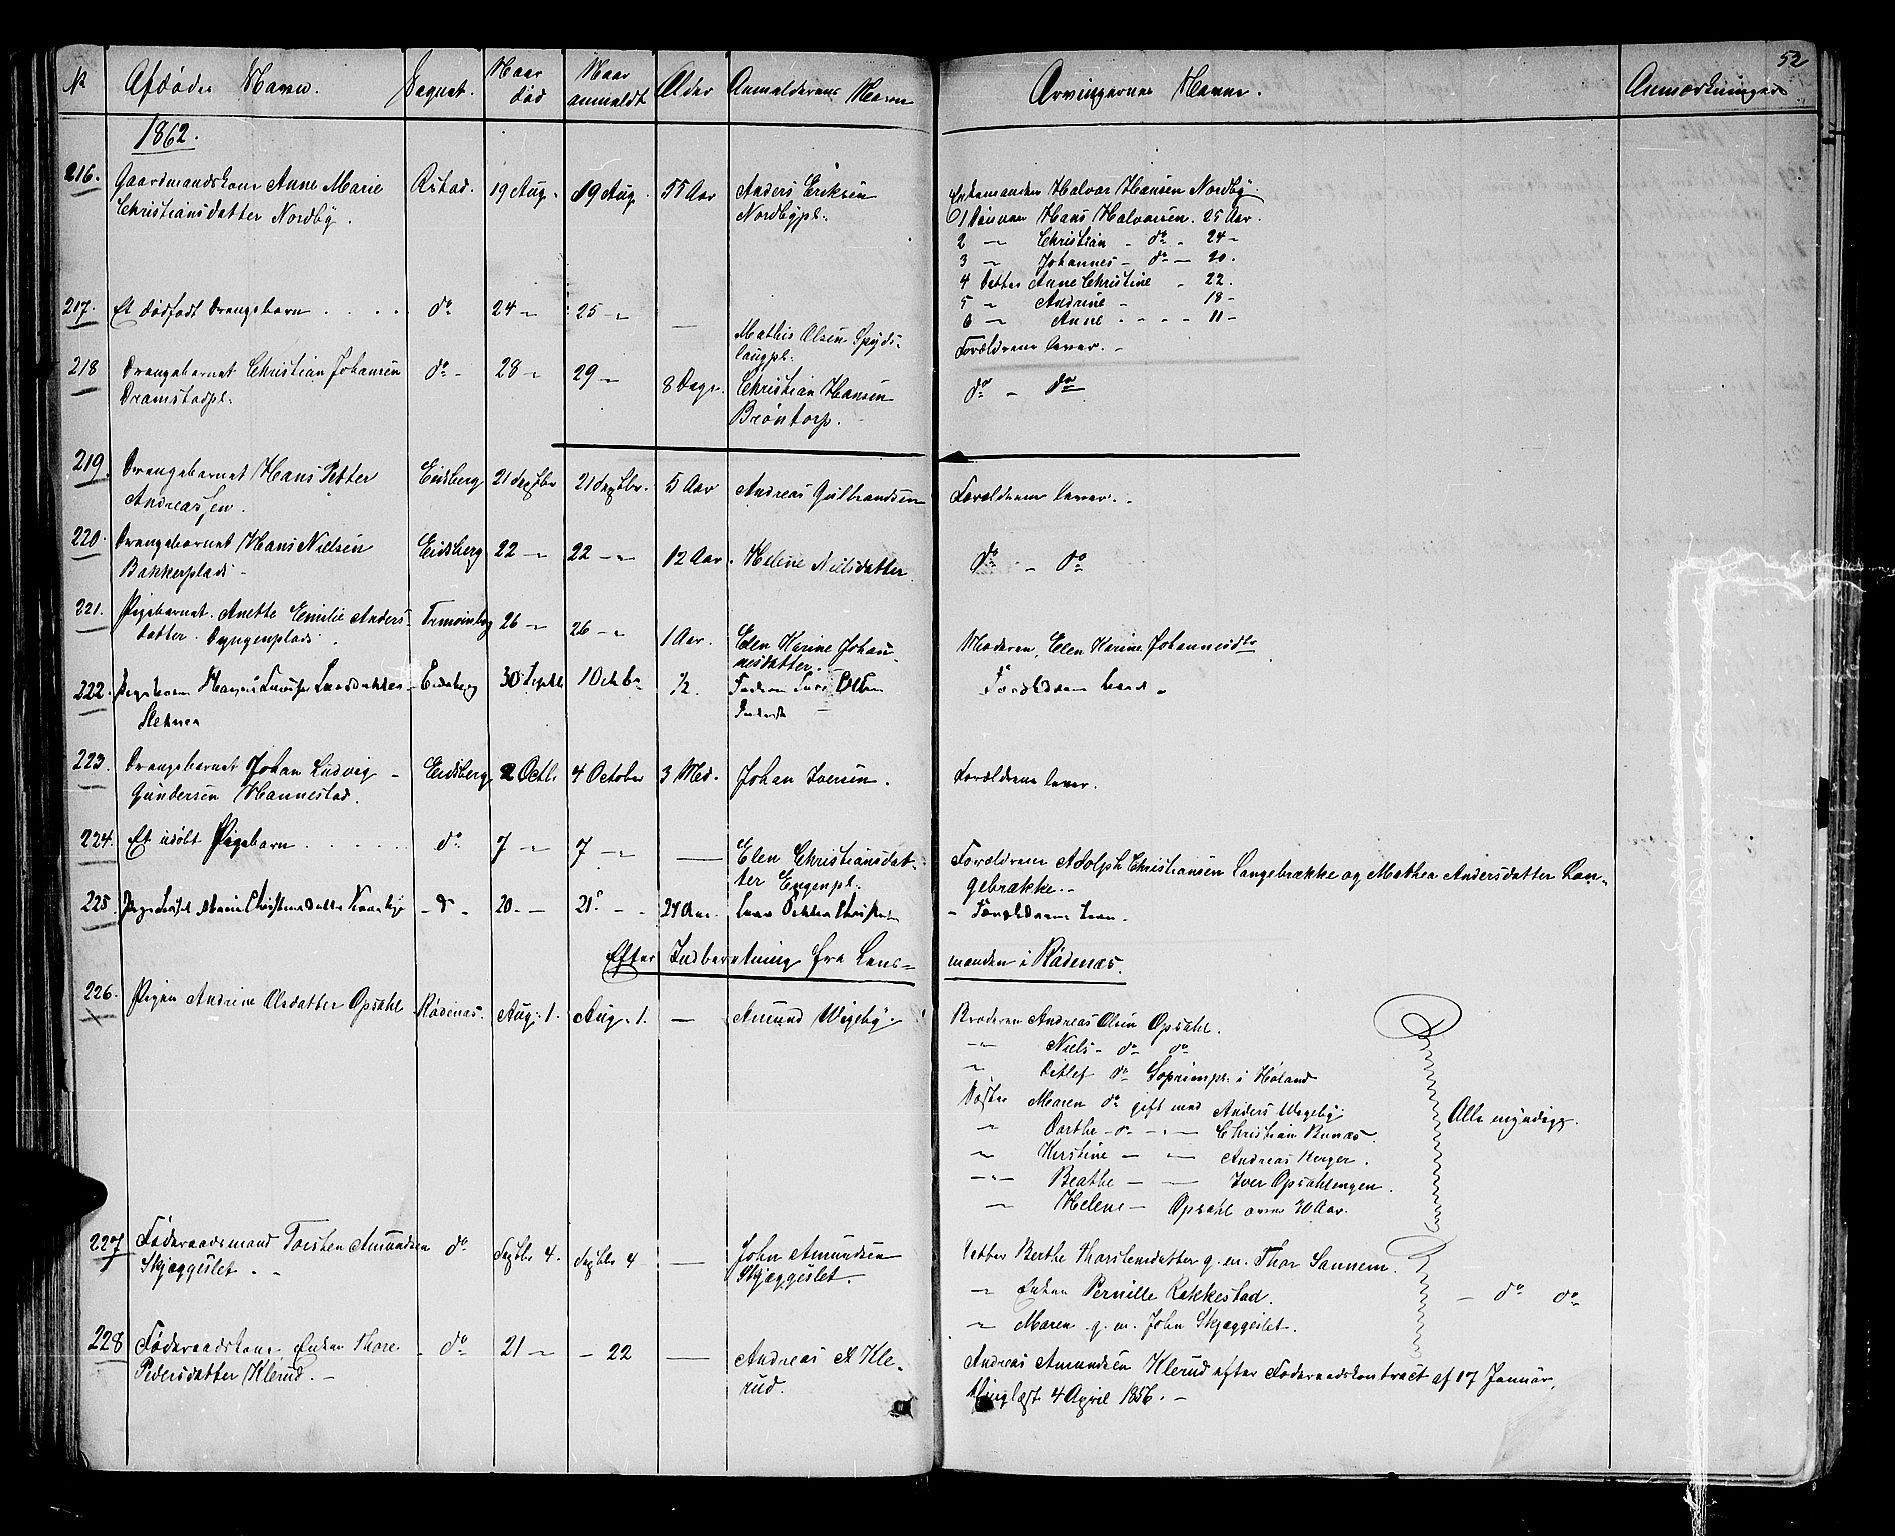 52
№ Afdødes Navn. Sognet. Naar død Naar anmeldt Alder Anmelderens Navn Arvingernes Navne. Anmærkninger
1862.
216. Gaardmandskone Anne Marie Rustad. 19 Aug. 19 Aug. 55 Aar Anders Eriksen Enkemanden Halvor Hansen Nordby.
Christiansdatter Nordby. Nordbypl. 1 Sønnen Hans Halvorsen. 25 Aar.
2 " Christian - do - 24 -
3 " Johannes - do - 20.
4 Datter Anne Christine - 22.
5 " Andrine - 18 -
6 " Anne - - - - 11 -
217. Et dødfødt Drengebarn . . . . . do 24 " 25 " — Mathis Olsen Spyds- Forældrene lever. -
laugpl.
218 Drengebarnet Christian Johansen do - 28 " 29 " 8 Dage. Christian Hansen do - do
Dramstadpl. Brøntorp.
219. Drengebarnet Hans Petter Eidsberg 21 Septbr 21 Septbr. 5 Aar Andreas Gulbrandsen Forældrene lever. -
Andreassen.
220. Drengebarnet Hans Nielsen Eidsberg 22 " 22 " 12 Aar. Helene Nielsdatter. do - do
Bakkerplads -
221. Pigebarnet. Anette Emilie Anders- 26 " 26 " 1 Aar. Elen Karine Johan- Moderen, Elen Karine Johannesdtr
datter. Dyngenplads. nesdatter.
222. Pigebarn Eidsberg 30 Septbr 1 Octbr ½ Faderen Lars Olsen Forældrene lever -
223. Drengebarnet Johan Ludvig - Eidsberg 2 Octb. 4 October 3 Md. Johan Iversen. Forældrene lever.
Gundersen Hannestad.
224. Et udøbt Pigebarn . . . . . do 7 " 7 " — Elen Christiansdat- Forældrene Adolph Christiansen Langebrække og Mathea Andersdatter Lan-
ter Engenpl. gebrække. -
225. Marie Christiansdatter - d - 20 - - 21 - - - Forældrene lever.
Efter Indberetning fra Lens- manden i Rødenæs.
226. Pigen Andrine Olsdatter Opsahl Rødenæs. Aug. 1. Aug. 1. — Amund Wigeby. Broderen Andreas Olsen Opsahl.
" Niels - do do
" Ditlef do i Høland
Søster Maren do gift med Anders Wigeby. Alle myndige.
" Dorthe - do - " — Christian Bunæs.
" Kirstine — " — Andreas Berger.
" Beathe — — Iver Opsahlengen.
" Helene — Opsahl over 30 Aar.
227 Føderaadsmand Torsten Amundsen do Septbr 4. Septbr 4 — John Amundsen Datter Berthe Thorstensdatter g. m. Thor Sannem.
Skjæggeslet. - Skjæggeslet. " Enken Pernille Rakkestad. - do do
" Maren g. m. John Skjæggeslet.
228 Føderaadskone Enken Thore - do 21 " - 22 — Andreas A Kle- Andreas Amundsen Klerud efter Føderaadskontract af 17 Januar,
Pedersdatter Klerud. - rud. thinglæst 4 April 1856. -